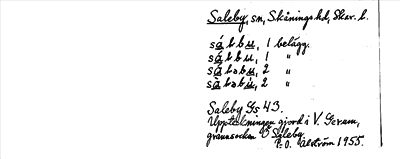 Saleby, sn, Skånings hd, Skar. l.
så b b u, 1 belägg.
så b b u, 1 "
så b ə b u, 2 "
så b ə b u, 2 "
Saleby Gs 43.
Uppteckningen gjord i V. Gerum,
grannsocken t. Saleby.
P. O. Alström 1955.